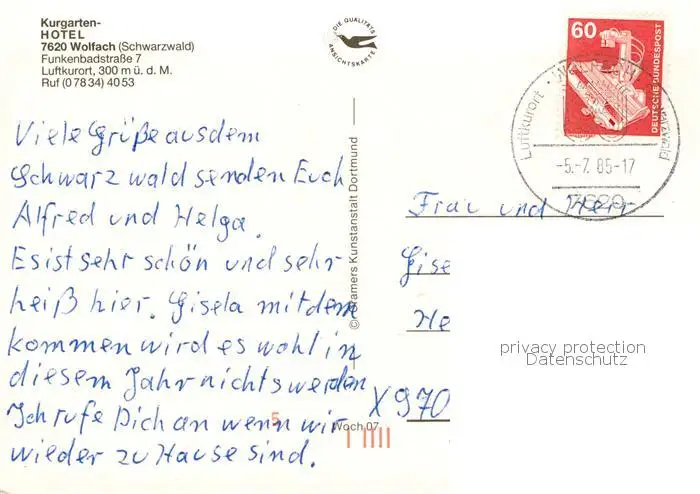 Kurgarten-
HOTEL
7620 Wolfach (Schwarzwald)
Funkenbadstraße 7
Luftkurort, 300 m ü. d. M.
Ruf (0 78 34) 40 53
DIE QUALITÄTS
ANSICHTSKARTE
60
DEUTSCHE BUNDESPOST
Luftkurort
-5.-7. 85-17
7620
Viele Grüße aus dem
Schwarzwald senden Euch
Alfred und Helga.
Es ist sehr schön und sehr
heiß hier. Gisela mit dem
kommen wird es wohl in
diesem Jahr nichts werden
Ich rufe Dich an wenn wir
wieder zu Hause sind.
© Cramers Kunstanstalt Dortmund
Woch 07
5
Frau und Herr
Gise
He
X 970
privacy protection
Datenschutz